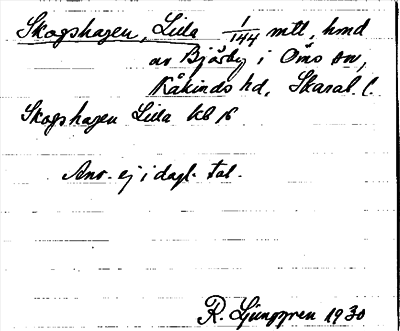 Skogshagen, Lilla 1/144 mtl, hmd
av Bjärby i Öms sn,
Kåkinds hd, Skarab. l.
Skogshagen Lilla kb 18
Anv. ej i dagl. tal.
R. Ljunggren 1930